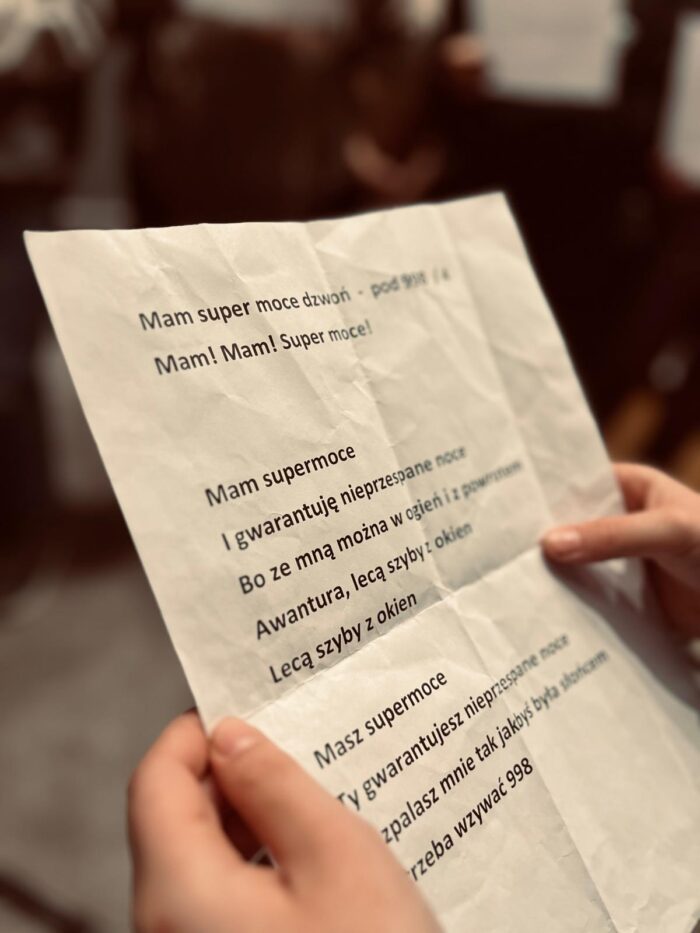 Mam super moce dzwoń - pod 998 / 4
Mam! Mam! Super moce!
Mam supermoce
I gwarantuję nieprzespane noce
Bo ze mną można w ogień i z powrotem
Awantura, lecą szyby z okien
Lecą szyby z okien
Masz supermoce
Ty gwarantujesz nieprzespane noce
zpalasz mnie tak jakbyś była słońcem
rzeba wzywać 998